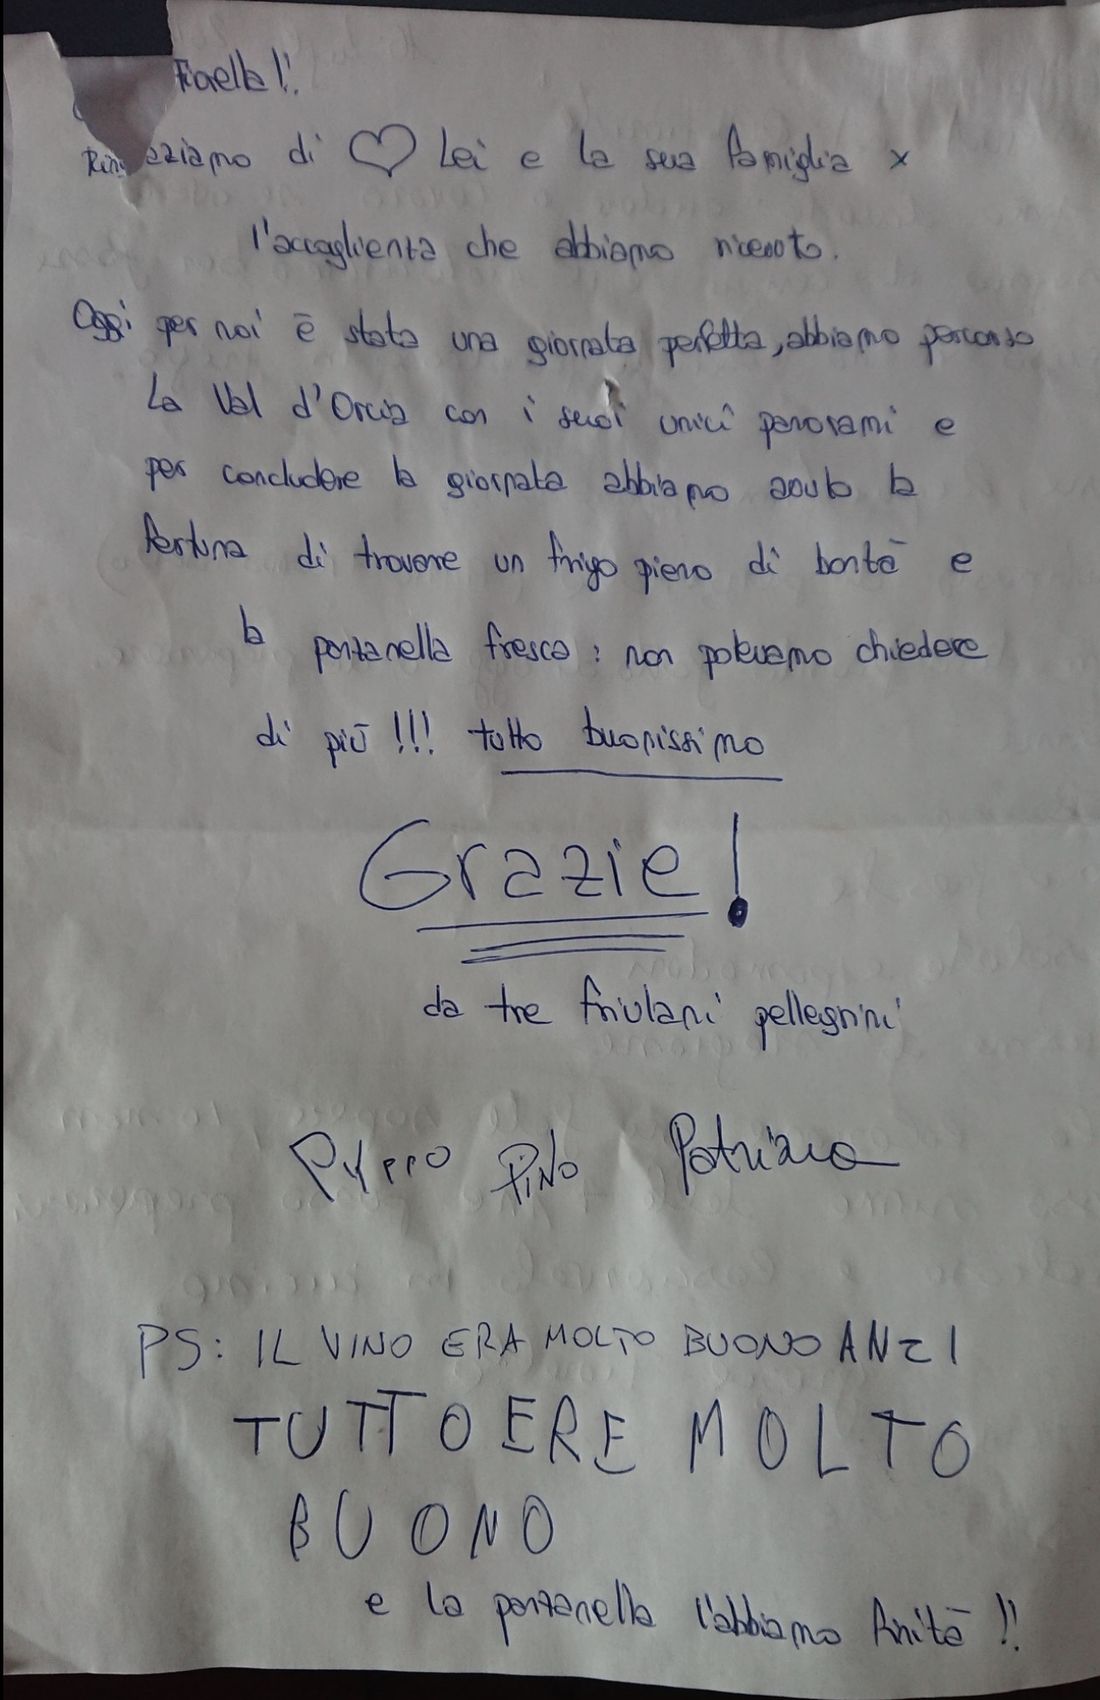 Fiorella!!
Ring aziamo di ♡ Lei e la sua famiglia x
l'accoglienza che abbiamo ricevuto.
Oggi per noi è stata una giornata perfetta, abbiamo percorso
la Val d'Orcia con i suoi unici panorami e
per concludere la giornata abbiamo avuto la
fortuna di trovare un frigo pieno di bontà e
la panzanella fresca: non potevamo chiedere
di più!!! tutto buonissimo
Grazie!
da tre friulani pellegrini
Pino
PS: IL VINO ERA MOLTO BUONO ANZI
TUTTO ERE MOLTO
BUONO
e la panzanella l'abbiamo finità!!